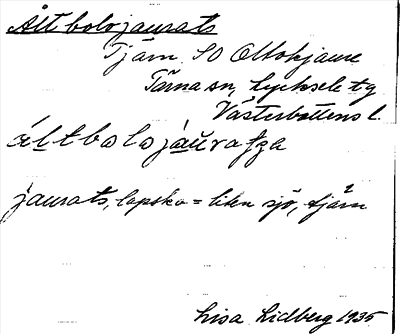 Ålt bolojaurats
Tjärn, SO Ottokjaure
Tärna sn, Lycksele tg
Västerbottens l.
áltbolojaŭratga
jaurats, lapska = liten sjö, tjärn
Lisa Lidberg 1935